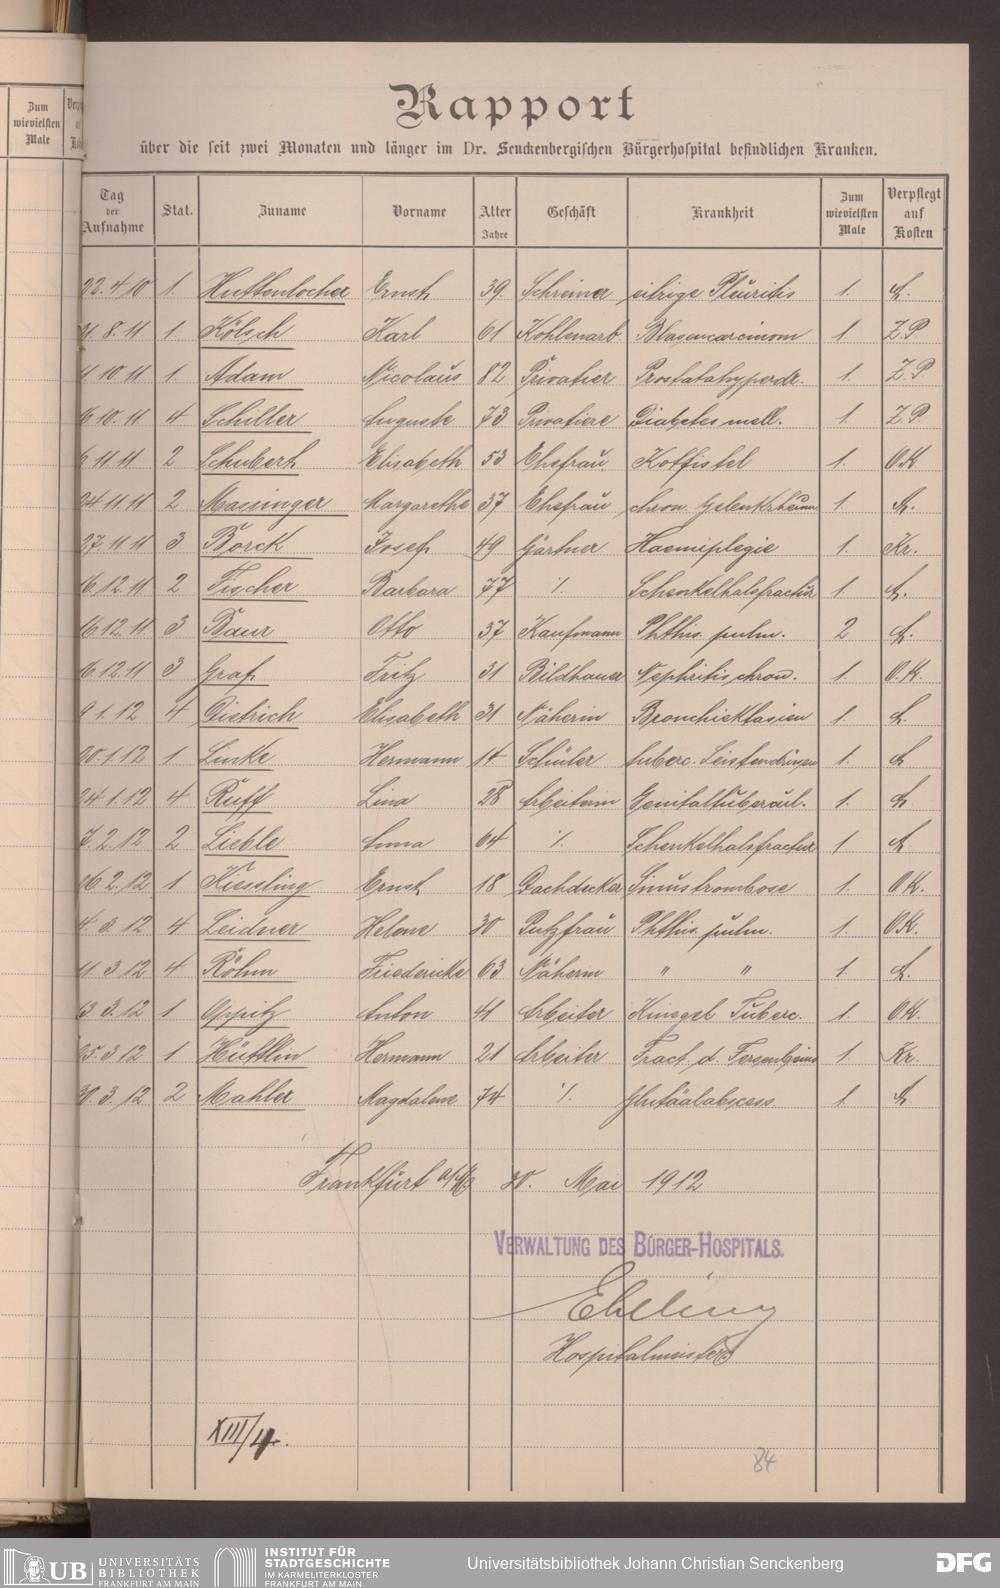 Zum wievielsten Male
Rapport
über die seit zwei Monaten und länger im Dr. Senckenbergischen Bürgerhospital befindlichen Kranken.
Tag der Aufnahme Stat. Zuname Vorname Alter Jahre Geschäft Krankheit Zum wievielsten Male Verpflegt auf Kosten
22. 4 10 1. Huttenlocher Ernst 39. Schreiner eitrige Pleuritis 1.
1. 8. 11 1. Kölsch Karl 61 Kohlenarb. Blasencarcinom 1. Z. P
1. 10 11 1. Adam Nicolaus 82 Privatier Prostatahypertr. 1. Z. P
6 10. 11 4 Schiller Auguste 73 Privatiere Diabetes mell. 1. Z. P.
6 11 11 2 Schubert Elisabeth 53 Ehefrau Kotfistel 1. O.K
24 11. 11 2 Margarethe 37 Ehefrau chron. Gelenkrheum 1.
27. 11 11 3 Borck Josef 49 Gärtner Haemiplegie 1. Kr.
16. 12. 11 2 Fischer Barbara 77 ·/. Schenkelhalsfractur 1.
16 12. 11 3 Baur Otto 37 Kaufmann Phthis. pulm. 2
6. 12. 11 3 Graf Fritz 31 Bildhauer Nephritis chron. 1. O.K.
9 1. 12 4 Dietrich Elisabeth 31 Näherin Bronchiektasien 1.
20. 1. 12 1 Linke Hermann 14 Schüler tuberc. Leistendrüsen 1.
24 1. 12 4 Ruff Lina 28 Arbeiterin Genitaltubercul. 1.
7. 2. 12 2 Lieble Anna 64 ·/. Schenkelhalsfractur 1
16 2. 12 1 Kiessling Ernst 18 Dachdecker Sinustrombose 1. O.K.
4. 3. 12 4 Leidner Helene 30 Putzfrau Phthis. pulm. 1. O.K.
11 3 12 4 Röhm Friedericke 63 Näherin " " 1.
13 3. 12 1 Oppitz Anton 41 Arbeiter Tuberc. 1. O.K.
25. 3 12 1 Hüttlin Hermann 21 Arbeiter Fract. d. Fersenbeins 1. Kr.
30. 3. 12 2 Mahler Magdalene 74 ·/. Glutäalabscess 1.
Frankfurt a/M 30. Mai 1912
VERWALTUNG DES BÜRGER-HOSPITALS.
Ebeling
Hospitalmeister
XIII/4.
84
UB UNIVERSITÄTS BIBLIOTHEK FRANKFURT AM MAIN
INSTITUT FÜR STADTGESCHICHTE IM KARMELITERKLOSTER FRANKFURT AM MAIN
Universitätsbibliothek Johann Christian Senckenberg
DFG